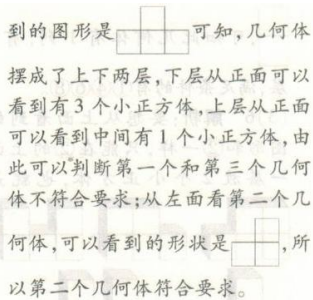 到的图形是可知,几何体
摆成了上下两层,下层从正面可以
看到有3个小正方体,上层从正面
可以看到中间有1个小正方体,由
此可以判断第一个和第三个几何
体不符合要求;从左面看第二个几
何体,可以看到的形状是,所
以第二个几何体符合要求。